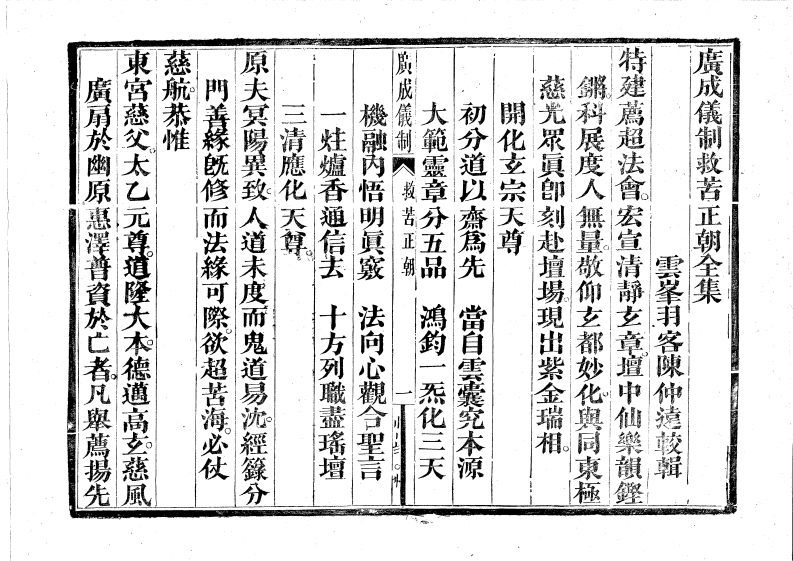 廣成儀制救苦正朝全集
雲峯羽客陳仲遠較輯
特建薦超法會。宏宣清靜玄章。壇中仙樂韻鏗
鏘。科展度人無量。敬仰玄都妙化。與同東極
慈光眾眞卽刻赴壇場。現出紫金瑞相。
開化玄宗天尊
初分道以齋爲先　當自雲囊究本源
大範靈章分五品　鴻鈞一炁化三天
廣成儀制　救苦正朝　一
機融內悟明眞竅　法向心觀合聖言
一炷爐香通信去　十方列職盡瑤壇
三清應化天尊。
原夫冥陽異致。人道未度而鬼道易沈。經籙分
門善緣旣修而法緣可際。欲超苦海。必仗
慈航。恭惟
東宮慈父。太乙元尊。道隆大本。德邁高玄。慈風
廣扇於幽原。惠澤普資於亡者。凡舉薦揚先